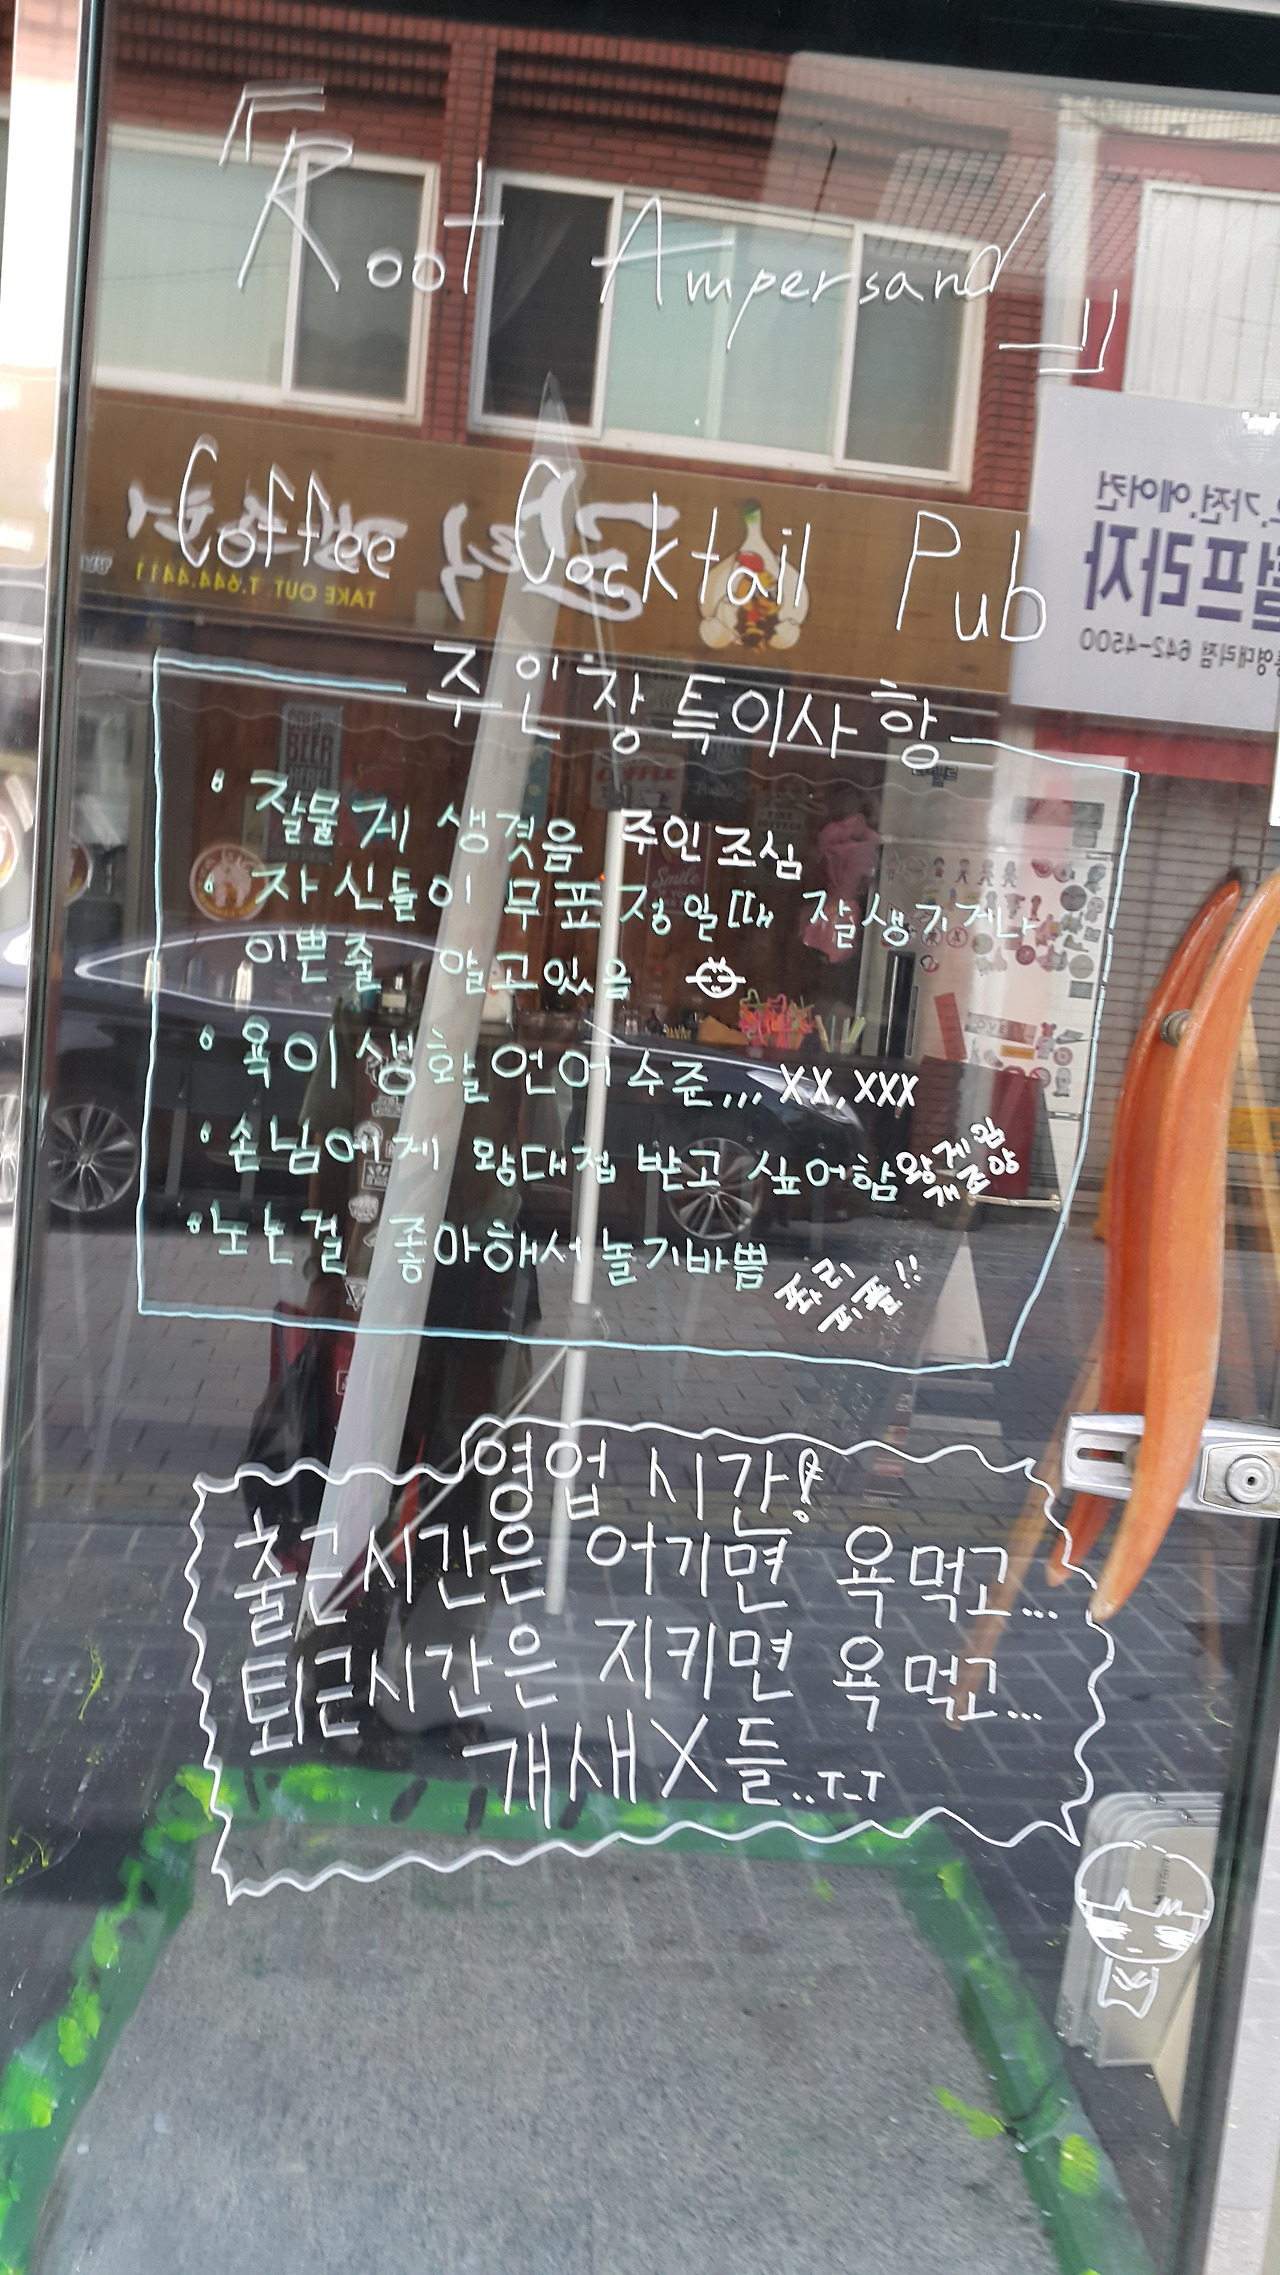 『Root Ampersand』
Coffee Cocktail Pub
주인장 특이사항
• 잘물게 생겻음 주인조심
• 자신들이 무표정일때 잘생기거나
이쁜줄 알고있음
• 욕이 생활언어 수준,,, XX, XXX
• 손님에게 왕대접 받고 싶어함 왕게임
개조앙
• 노는걸 좋아해서 놀기바쁨 쫘리
피플!!
영업 시간!
출근시간은 어기면 욕먹고...
퇴근시간은 지키면 욕먹고...
개새X들..T-T
TAKE OUT T.644.4411
가전.에어컨
프라자
642-4500
BEER
COFFEE
Smile